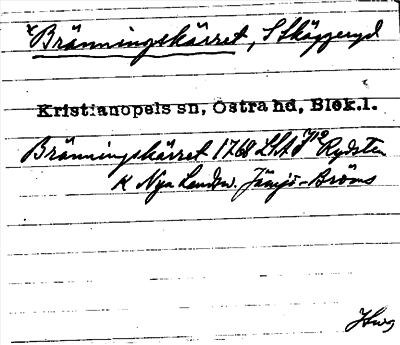 Bränningskärret, S Skäggeryd
Kristianopels sn, Östra hd, Blek.l.
Bränningskärret 1768 LSA F Rydsten
K Nya Landsv. Jämjö-Bröms